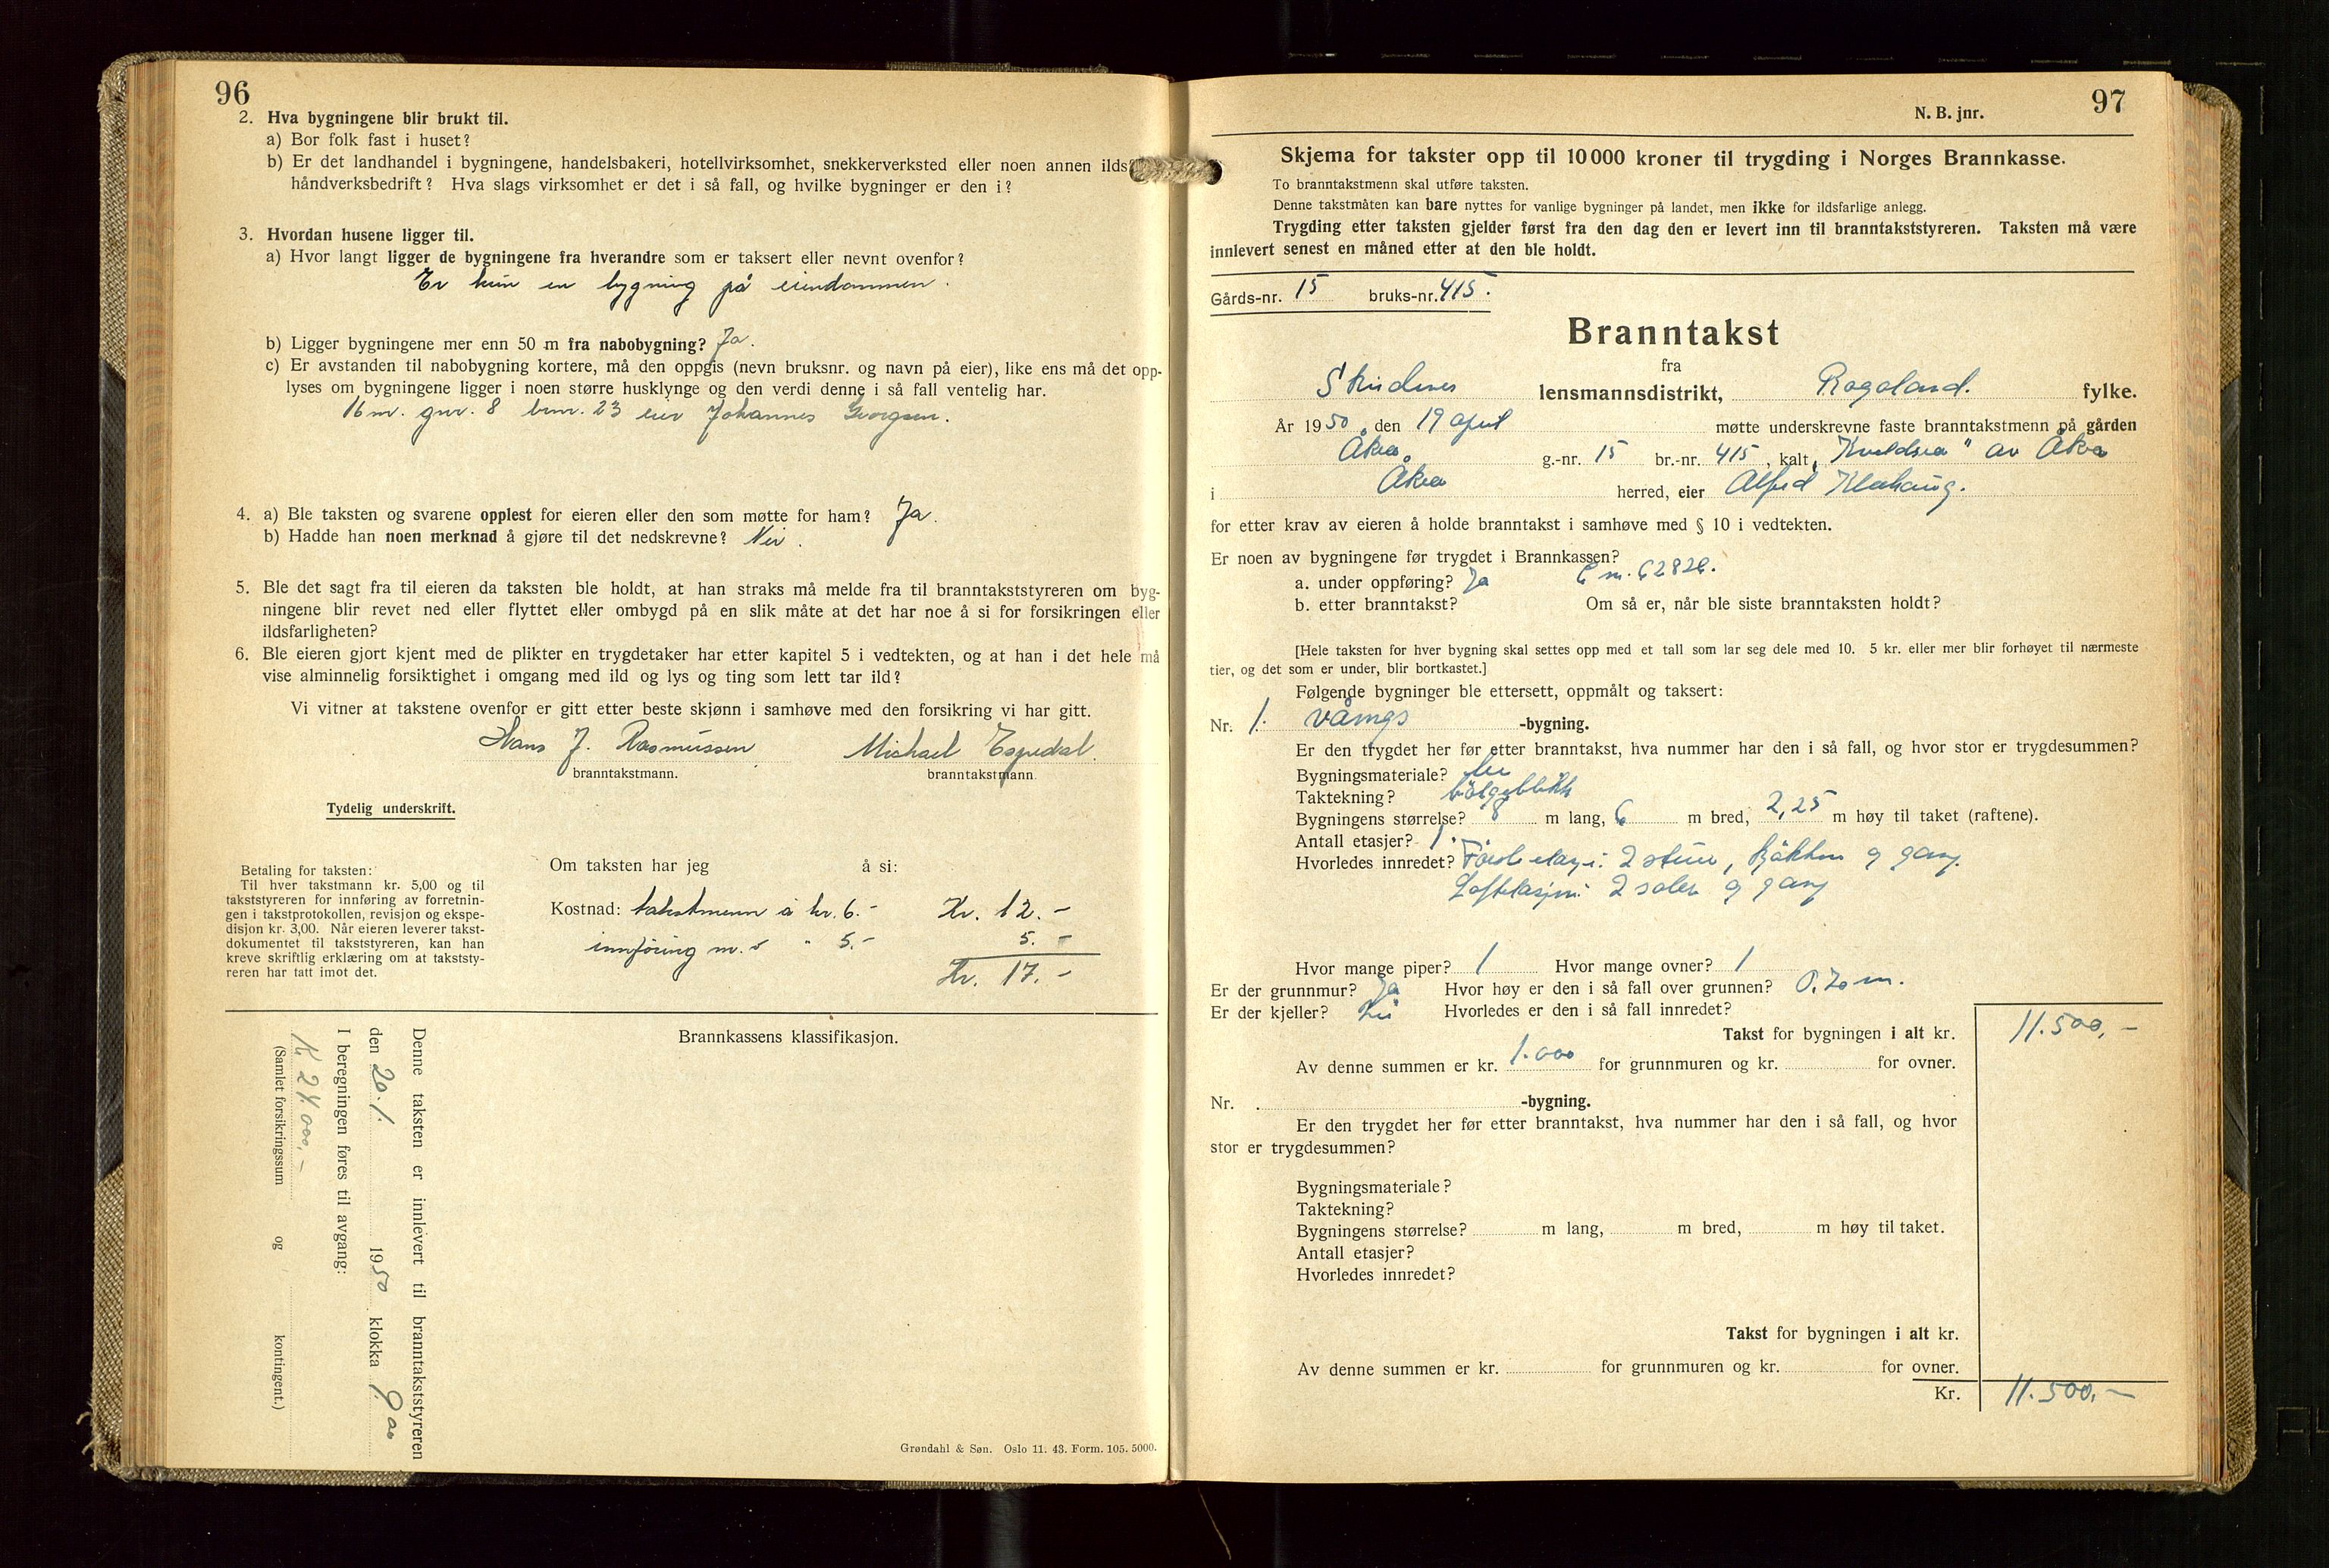 96
2. Hva bygningene blir brukt til.
a) Bor folk fast i huset?
b) Er det landhandel i bygningene, handelsbakeri, hotellvirksomhet, snekkerverksted eller noen annen ilds
håndverksbedrift? Hva slags virksomhet er det i så fall, og hvilke bygninger er den i?
3. Hvordan husene ligger til.
a) Hvor langt ligger de bygningene fra hverandre som er taksert eller nevnt ovenfor?
Er kun en bygning på eiendommen.
b) Ligger bygningene mer enn 50 m fra nabobygning? Ja.
c) Er avstanden til nabobygning kortere, må den oppgis (nevn bruksnr. og navn på eier), like ens må det opp-
lyses om bygningene ligger i noen større husklynge og den verdi denne i så fall ventelig har.
16 m. gnr. 8 bnr. 23 eier Johannes Georgsen.
4. a) Ble taksten og svarene opplest for eieren eller den som møtte for ham? Ja.
b) Hadde han noen merknad å gjøre til det nedskrevne? Nei.
5. Ble det sagt fra til eieren da taksten ble holdt, at han straks må melde fra til branntakststyreren om byg-
ningene blir revet ned eller flyttet eller ombygd på en slik måte at det har noe å si for forsikringen eller
ildsfarligheten?
6. Ble eieren gjort kjent med de plikter en trygdetaker har etter kapitel 5 i vedtekten, og at han i det hele må
vise alminnelig forsiktighet i omgang med ild og lys og ting som lett tar ild?
Vi vitner at takstene ovenfor er gitt etter beste skjønn i samhøve med den forsikring vi har gitt.
Hans J. Rasmussen Michael Espedal.
branntakstmann. branntakstmann.
Tydelig underskrift.
Betaling for taksten:
Til hver takstmann kr. 5,00 og til
takststyreren for innføring av forretnin-
gen i takstprotokollen, revisjon og ekspe-
disjon kr. 3,00. Når eieren leverer takst-
dokumentet til takststyreren, kan han
kreve skriftlig erklæring om at takststy-
reren har tatt imot det.
Om taksten har jeg å si:
Kostnad: takstmenn à kr. 6.- Kr. 12.-
innføring m. v " 5.- 5.-
Kr. 17.-
Brannkassens klassifikasjon.
Denne taksten er innlevert til branntakststyreren
den 20.1. 1950 klokka 9.00
I beregningen føres til avgang:
Kr. 24.000.-
(Samlet forsikringssum og kontingent.)
Grøndahl & Søn. Oslo 11. 43. Form. 105. 5000.
N. B. jnr. 97
Skjema for takster opp til 10 000 kroner til trygding i Norges Brannkasse.
To branntakstmenn skal utføre taksten.
Denne takstmåten kan bare nyttes for vanlige bygninger på landet, men ikke for ildsfarlige anlegg.
Trygding etter taksten gjelder først fra den dag den er levert inn til branntakststyreren. Taksten må være
innlevert senest en måned etter at den ble holdt.
Gårds-nr. 15 bruks-nr. 415.
Branntakst
fra
Skudenes lensmannsdistrikt, Rogaland. fylke.
År 1950, den 19 april møtte underskrevne faste branntakstmenn på gården
Åkra. g.-nr. 15 br.-nr. 415, kalt, av Åkra
i Åkra herred, eier Alfred
for etter krav av eieren å holde branntakst i samhøve med § 10 i vedtekten.
Er noen av bygningene før trygdet i Brannkassen?
a. under oppføring? Ja
b. etter branntakst? Om så er, når ble siste branntaksten holdt?
[Hele taksten for hver bygning skal settes opp med et tall som lar seg dele med 10. 5 kr. eller mer blir forhøyet til nærmeste
tier, og det som er under, blir bortkastet.]
Følgende bygninger ble ettersett, oppmålt og taksert:
Nr. 1. vånigs -bygning.
Er den trygdet her før etter branntakst, hva nummer har den i så fall, og hvor stor er trygdesummen?
Bygningsmateriale? tre
Taktekning? bölgeblikk
Bygningens størrelse? 8 m lang, 6 m bred, 2,25 m høy til taket (raftene).
Antall etasjer? 1.
Hvorledes innredet? Förste etasje: 2 stuer, kjökken og gang.
Loftetasjen: 2 saler og gang
Hvor mange piper? 1 Hvor mange ovner? 1
Er der grunnmur? Ja Hvor høy er den i så fall over grunnen? 0.70 m.
Er der kjeller? Hvorledes er den i så fall innredet?
Takst for bygningen i alt kr. 11.500,-
Av denne summen er kr. 1.000 for grunnmuren og kr. for ovner.
Nr. -bygning.
Er den trygdet her før etter branntakst, hva nummer har den i så fall, og hvor
stor er trygdesummen?
Bygningsmateriale?
Taktekning?
Bygningens størrelse? m lang, m bred, m høy til taket.
Antall etasjer?
Hvorledes innredet?
Takst for bygningen i alt kr.
Av denne summen er kr. for grunnmuren og kr. for ovner.
Kr. 11.500.-